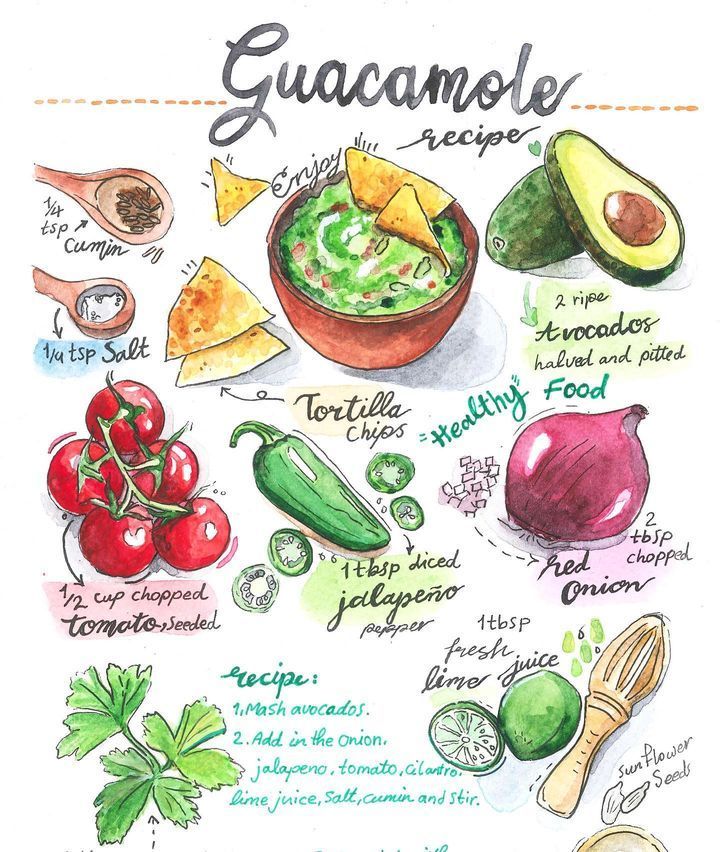 Guacamole
recipe
Enjoy
1/4
tsp
Cumin
1/4 tsp Salt
2 ripe
Avocados
halved and pitted
Tortilla
Chips
"Healthy" Food
1/2 cup chopped
tomato, seeded
1 tbsp diced
jalapeño
pepper
2
tbsp
chopped
red
Onion
1 tbsp
fresh
lime juice
recipe:
1, Mash avocados.
2. Add in the onion,
jalapeno, tomato, Cilantro,
lime juice, Salt, cumin and stir.
sunflower
Seeds